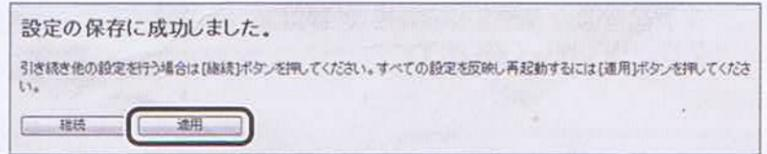 設定の保存に成功しました。
引き続き他の設定を行う場合は[継続]ボタンを押してください。すべての設定を反映し再起動するには[適用]ボタンを押してくださ
い。
継続 適用